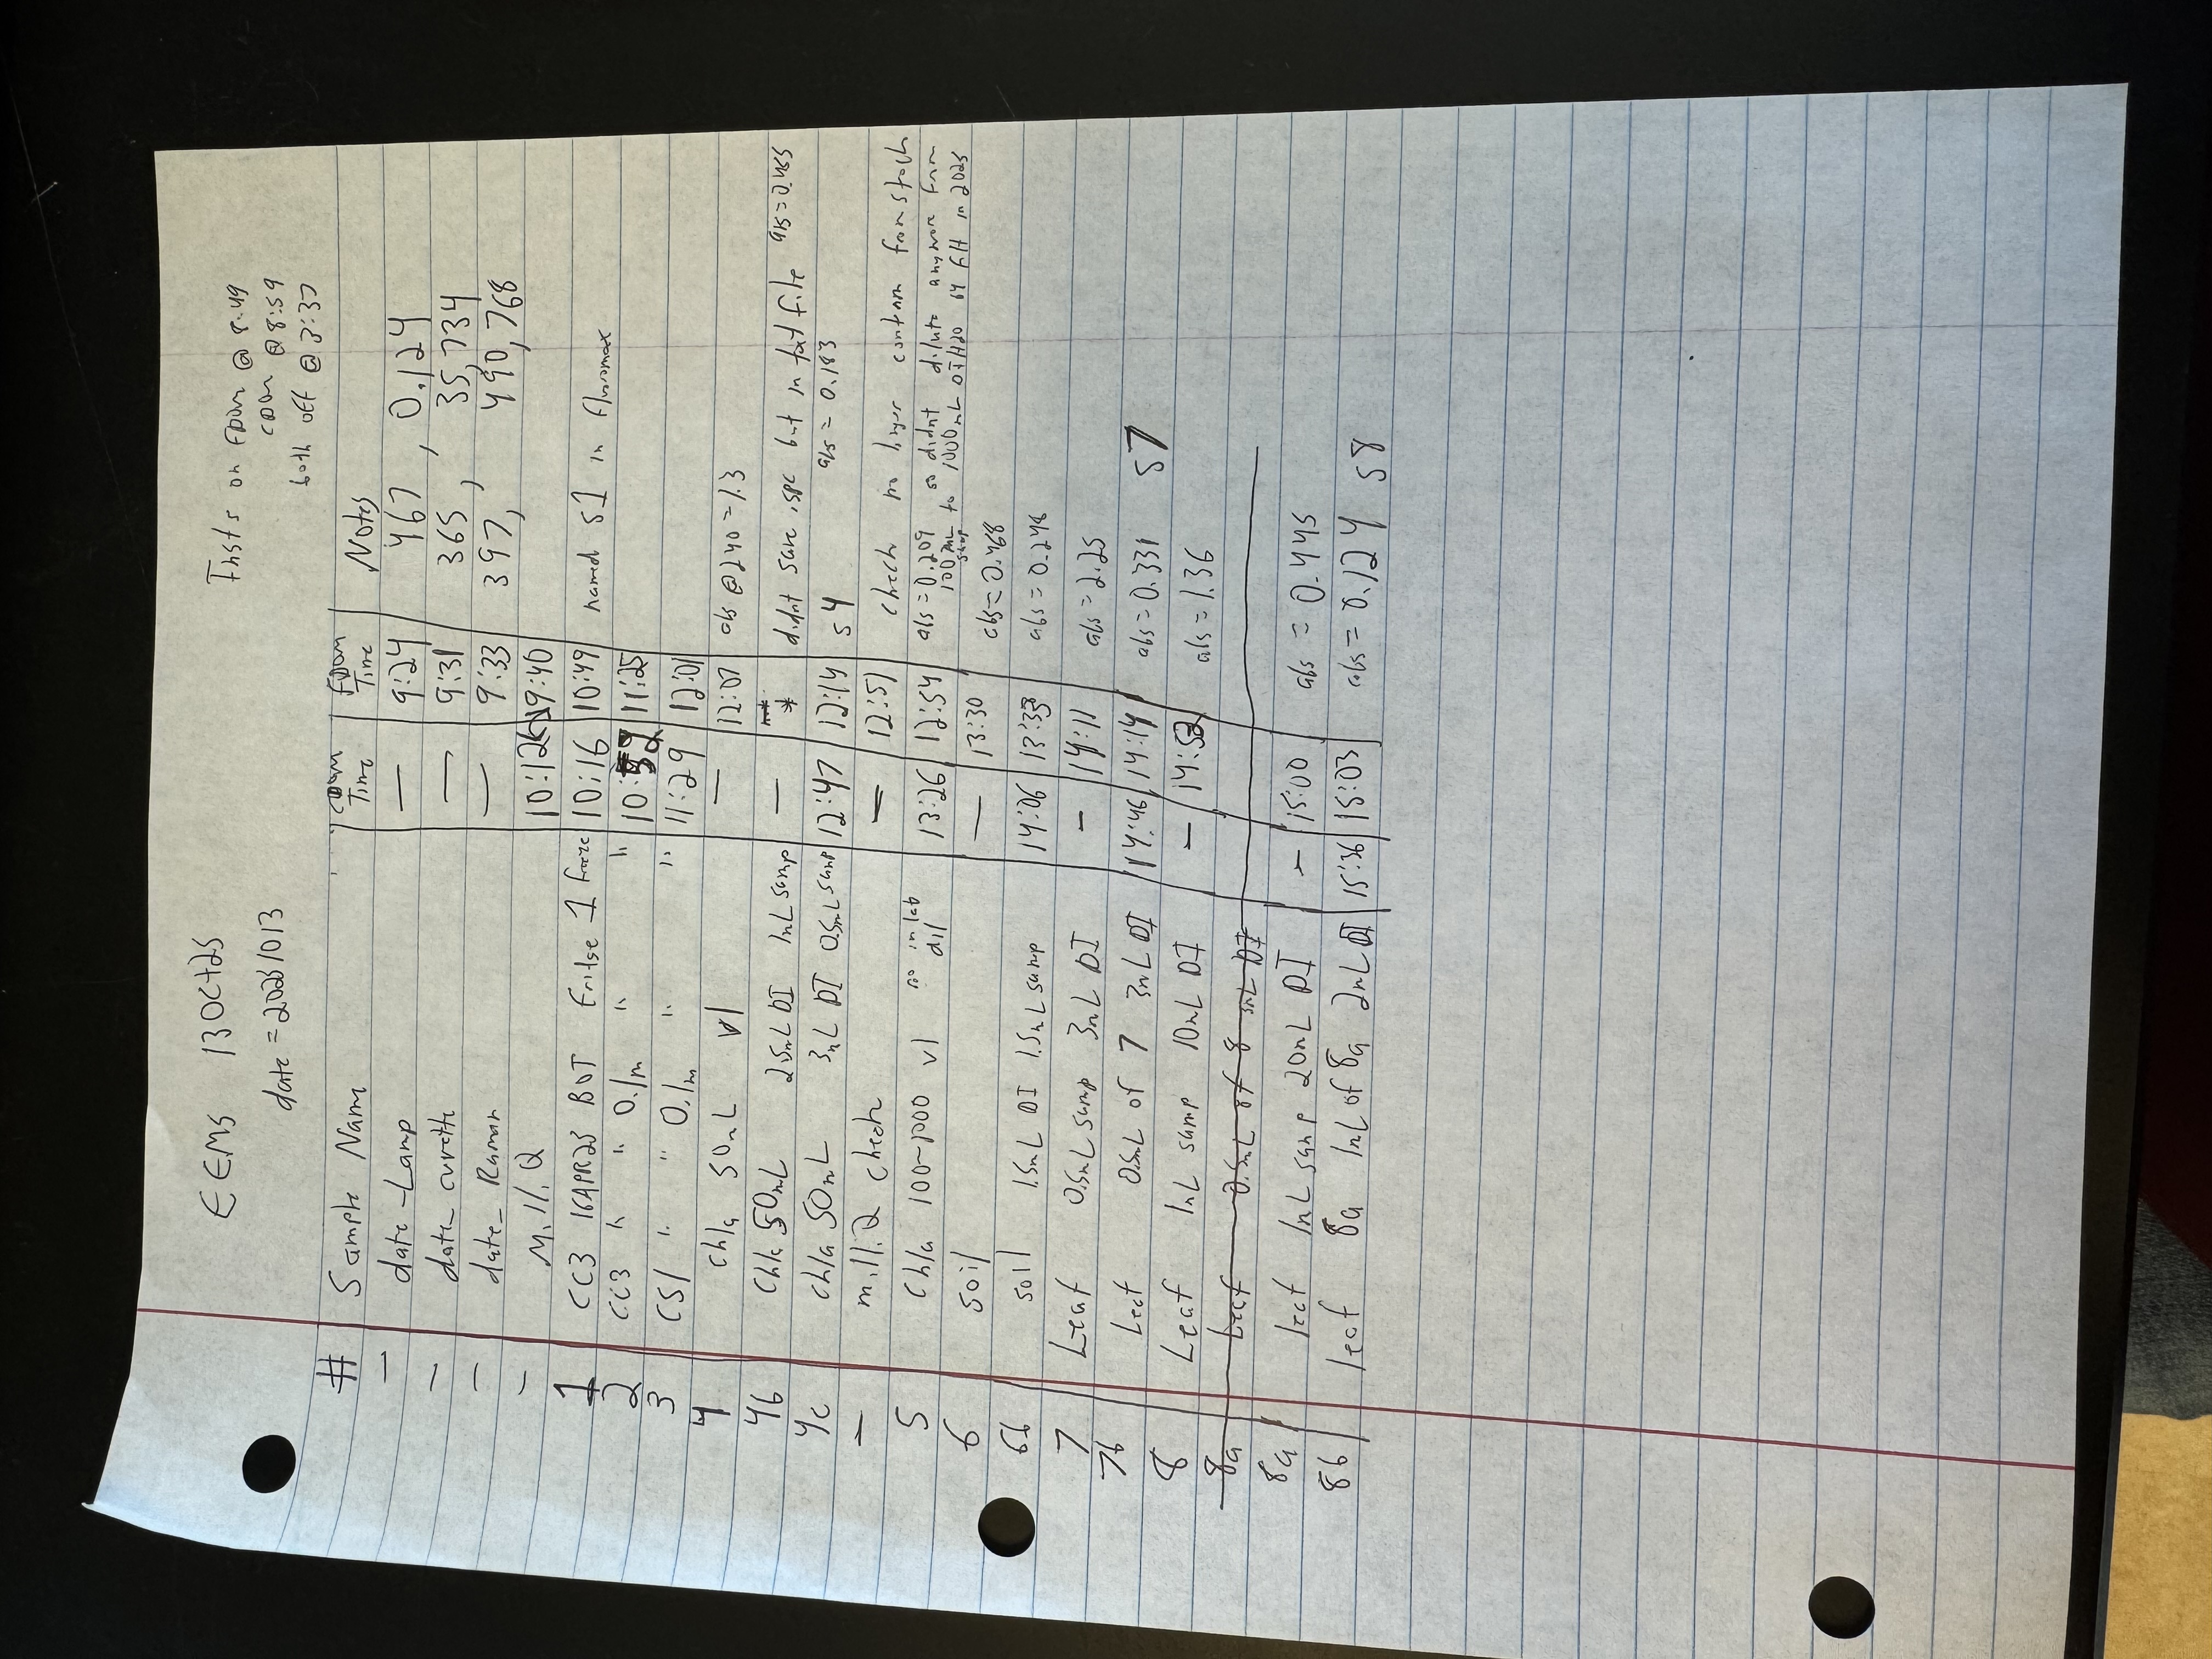 EEMS 13Oct25
Insts on FDOM @ 8:49
date = 20251013
CDOM @ 8:59
both off @ 3:37
# Sample Name CDOM Time FDOM Time Notes
— date-Lamp — 9:24 467, 0.124
— date_cuvette — 9:31 365, 35,734
— date_Raman — 9:33 397, 490,768
— Milli Q 10:12 9:40
1 CC3 16APR23 BOT 1 freeze 10:16 10:49 named s1 in fluoromax
2 CC3 " " 0.1m " " 10:52 11:25
3 CS1 " " 0.1m " " 11:29 12:01
4 chla 50mL v1 — 12:07 abs @240 = 1.3
4b chla 50mL 2.5mL DI 1mL samp — * didnt save .spc but in txt file abs=0.465
4c chla 50mL 3mL DI 0.5mL samp 12:47 12:14 s4 abs = 0.183
— milliQ check — 12:51 check no longer contam from stock
5 Chla 100~1000 v1 no in lab dil 13:26 12:54 abs=0.209 so didnt dilute anymore from
100mL samp to 1000mL DI H2O by EH in 2025
6 soil — 13:30 abs=0.468
6b soil 1.5mL DI 1.5mL samp 14:06 13:33 abs = 0.248
7 Leaf 0.5mL samp 3mL DI — 14:11 abs = 2.25
7b Leaf 0.5mL of 7 3mL DI 14:46 14:14 abs = 0.331 s7
8 Leaf 1mL samp 10mL DI — 14:52 abs = 1.36
8a Leaf 0.5mL of 8 3mL DI
8a leaf 1mL samp 20mL DI — 15:00 abs = 0.445
8b leaf 8a 1mL of 8a 2mL DI 15:36 15:03 abs = 0.124 s8